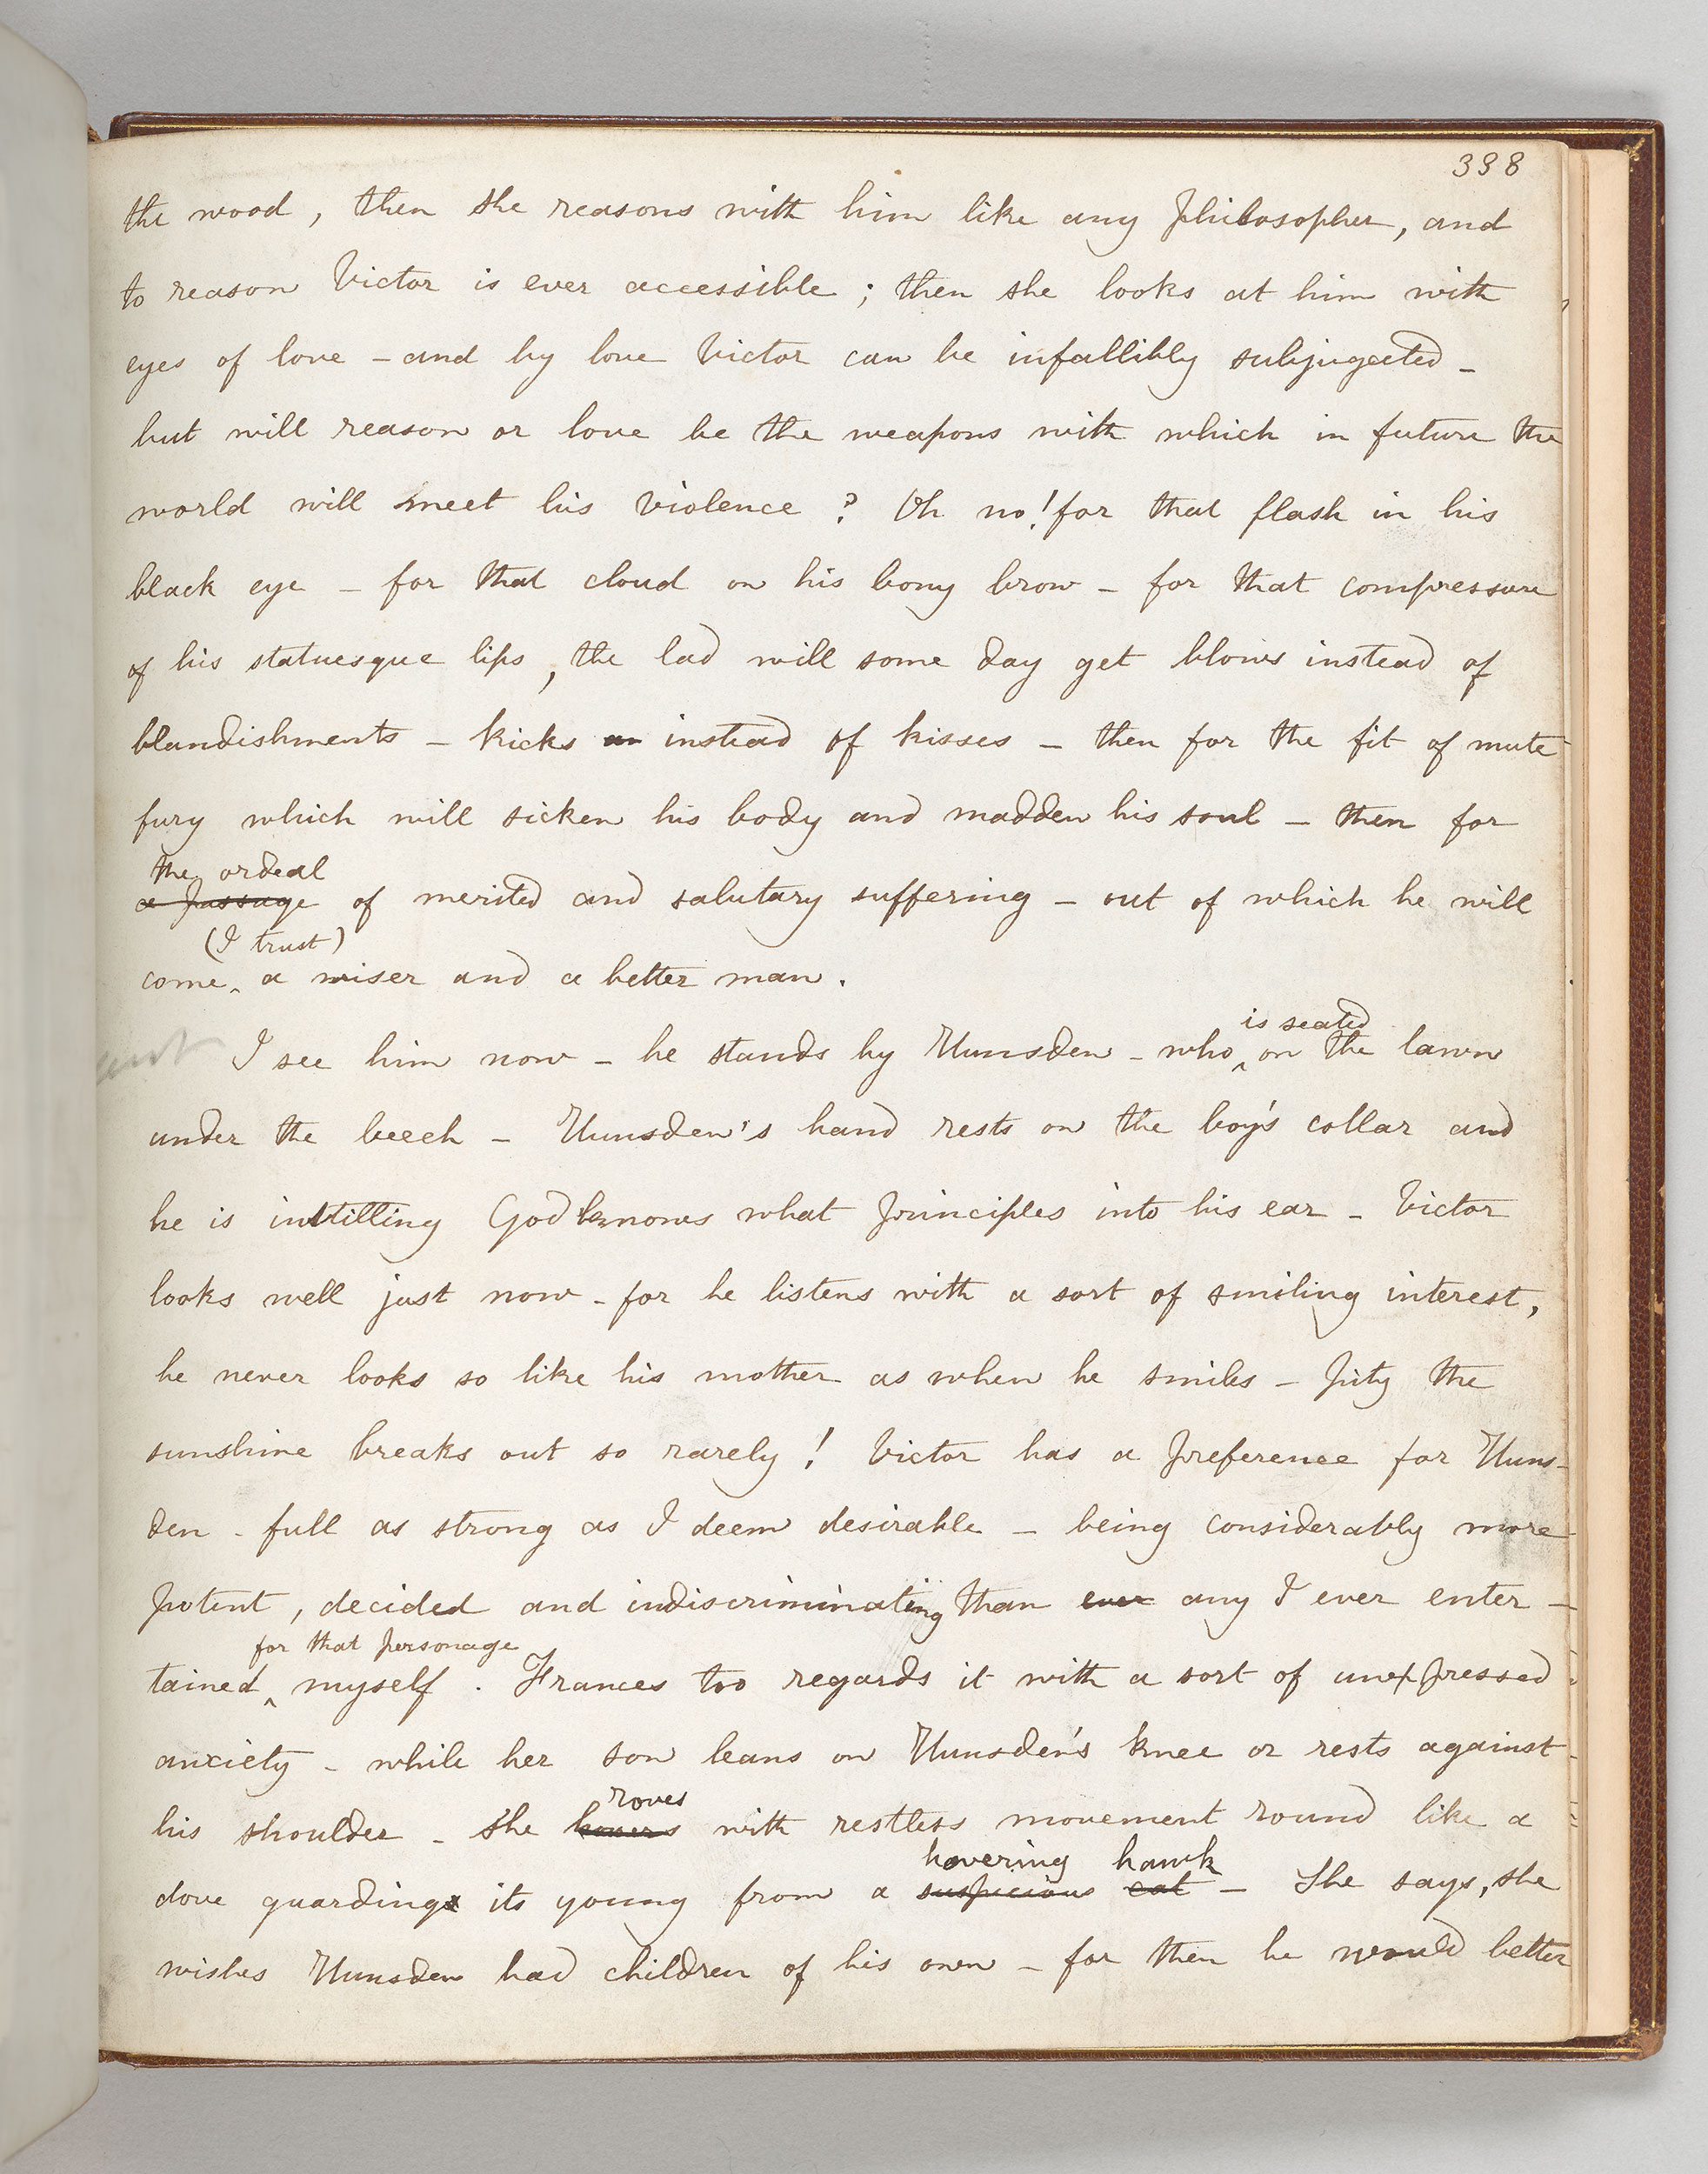 338
the wood, then she reasons with him like any philosopher, and
to reason Victor is ever accessible; then she looks at him with
eyes of love - and by love Victor can be infallibly subjugated -
but will reason or love be the weapons with which in future the
world will meet his violence? Oh no! for that flash in his
black eye - for that cloud on his bony brow - for that compressure
of his statuesque lips, the lad will some day get blows instead of
blandishments - kicks an instead of kisses - then for the fit of mute
fury which will sicken his body and madden his soul - then for
the ordeal
a passage of merited and salutary suffering - out of which he will
(I trust)
come a wiser and a better man.
is seated
I see him now - he stands by Hunsden - who on the lawn
under the beech - Hunsden's hand rests on the boy's collar and
he is instilling God knows what principles into his ear - Victor
looks well just now - for he listens with a sort of smiling interest,
he never looks so like his mother as when he smiles - pity the
sunshine breaks out so rarely! Victor has a preference for Huns-
den - full as strong as I deem desirable - being considerably more
potent, decided and indiscriminating than ever any I ever enter-
for that personage
tained myself. Frances too regards it with a sort of unexpressed
anxiety - while her son leans on Hunsden's knee or rests against
roves
his shoulder - she hovers with restless movement round like a
hovering hawk
dove guarding its young from a suspicious cat - She says, she
wishes Hunsden had children of his own - for then he would better